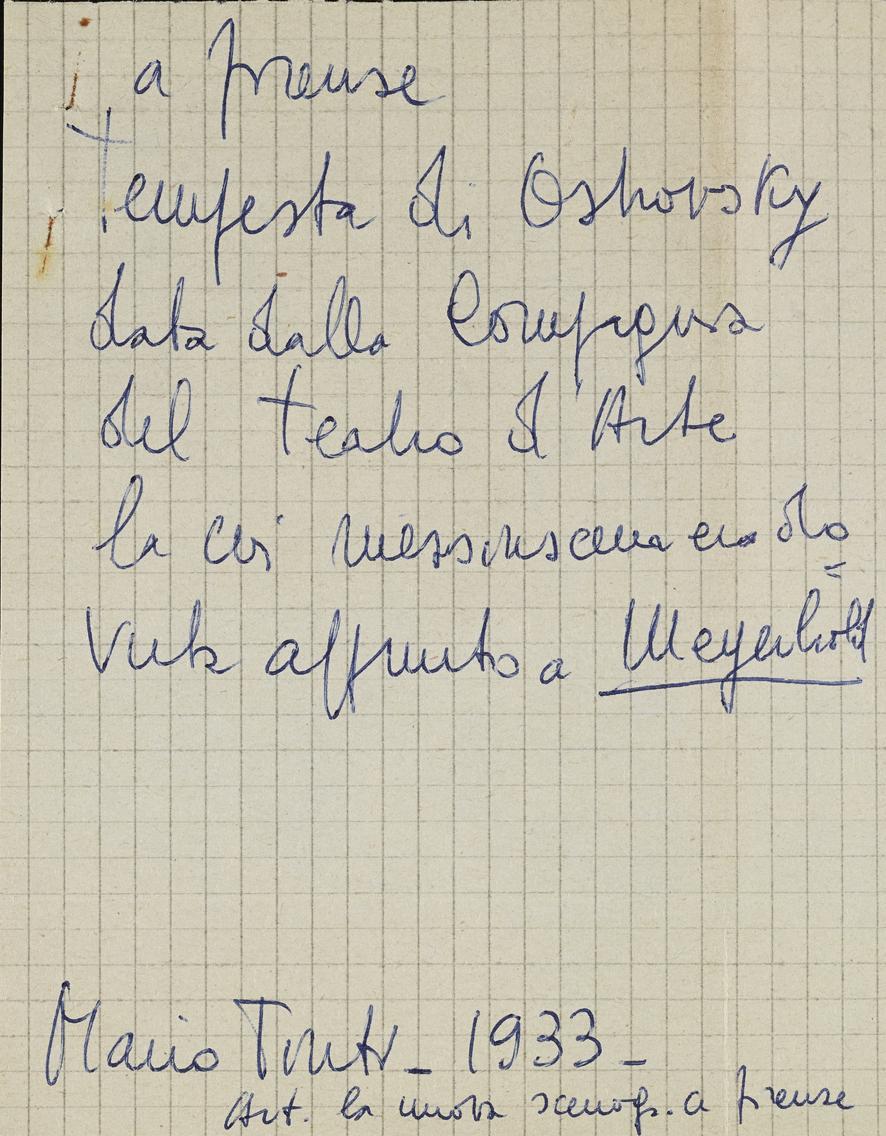 a firenze
Tempesta di Ostrovsky
data dalla Compagnia
del Teatro d'Arte
la cui messinscena era do
=
vuta appunto a Meyerhold
Mario Tinti - 1933 -
Art. la nuova scenogr. a firenze